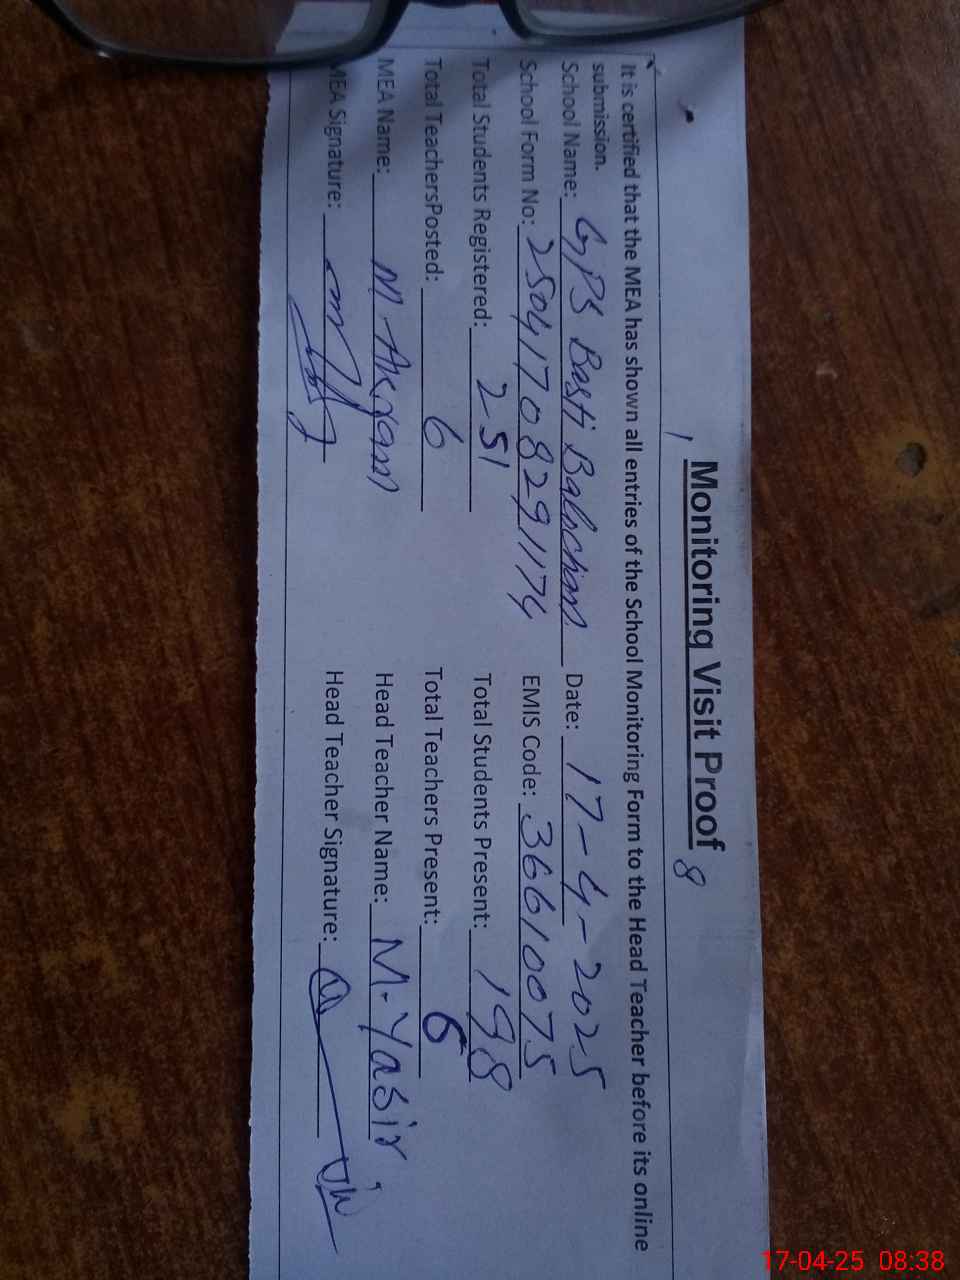 Monitoring Visit Proof
8
It is certified that the MEA has shown all entries of the School Monitoring Form to the Head Teacher before its online
submission.
School Name: GPS Basti Balochan Date: 17-4-2025
School Form No: 25041708291174 EMIS Code: 36610075
Total Students Registered: 251 Total Students Present: 198
Total TeachersPosted: 6 Total Teachers Present: 6
MEA Name: M Akram Head Teacher Name: M. Yasir
MEA Signature: Head Teacher Signature:
17-04-25 08:38